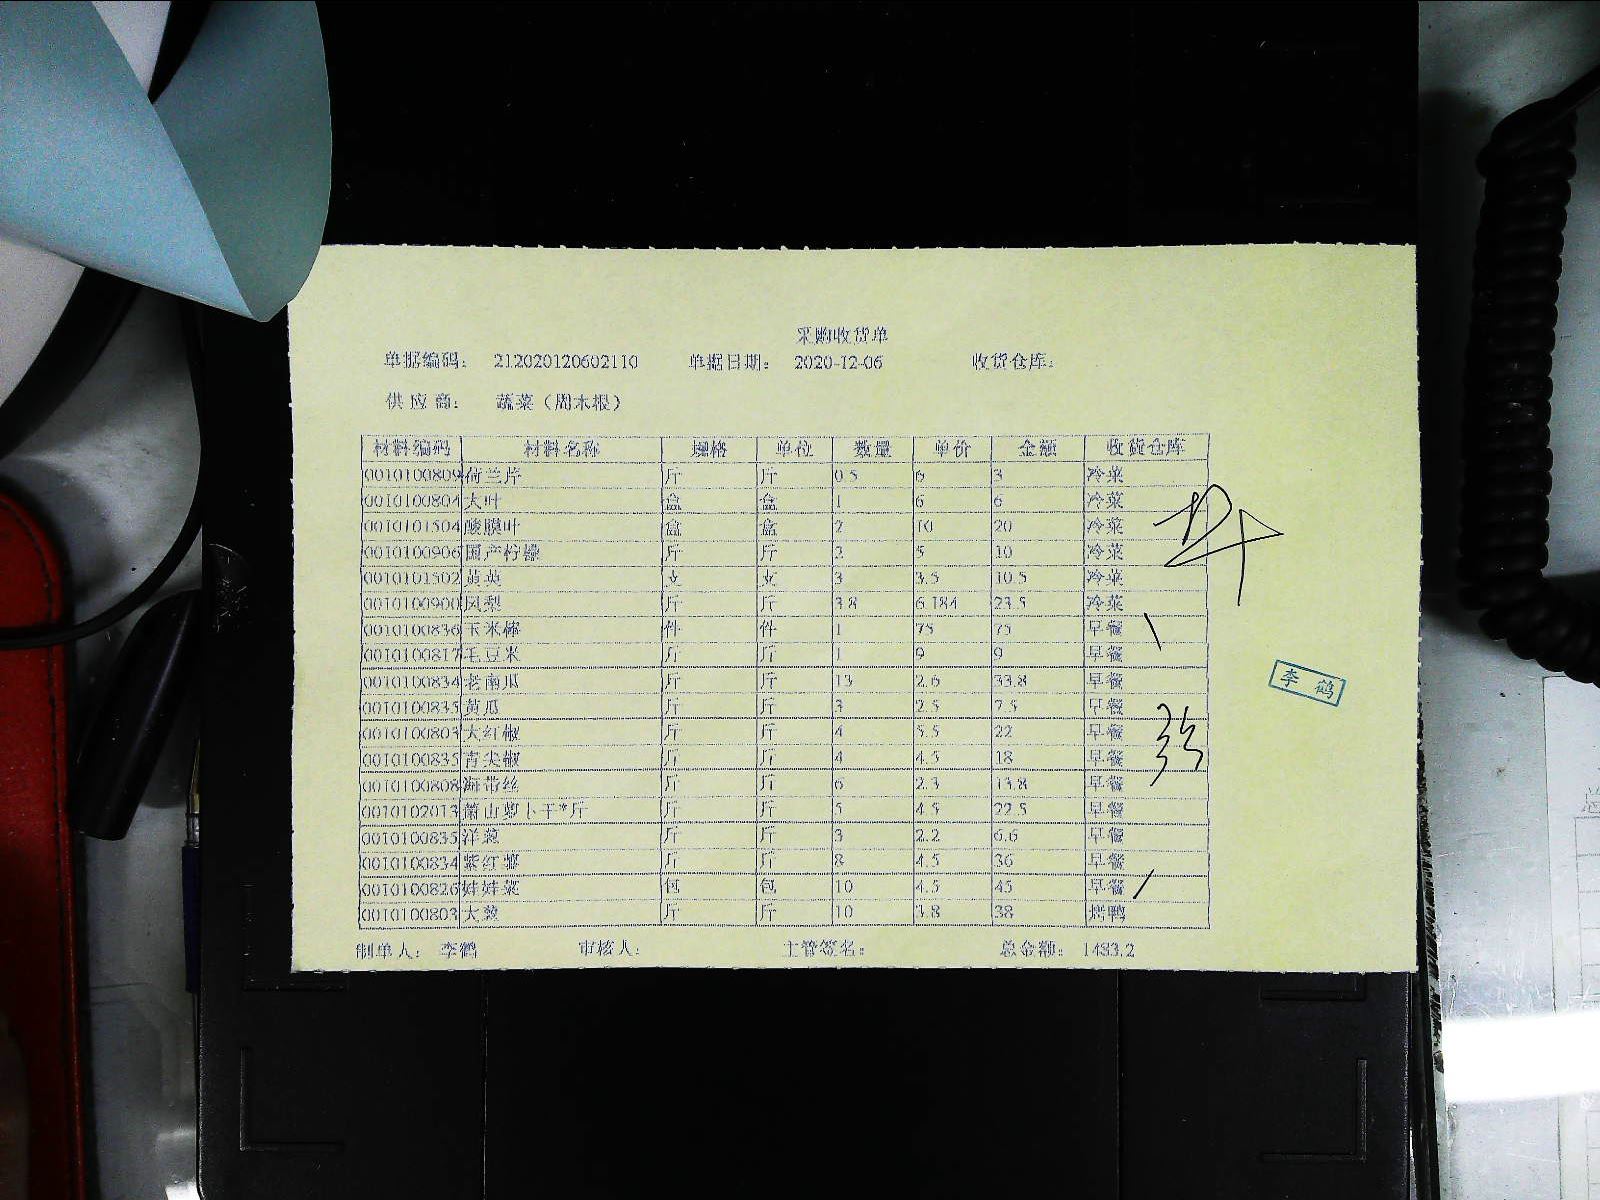 采购收货单
单据编码: 212020120602110 单据日期: 2020-12-06 收货仓库:
供应商: 蔬菜（周木根）
材料编码 材料名称 规格 单位 数量 单价 金额 收货仓库
0010100809 荷兰芹 斤 斤 0.5 6 3 冷菜
0010100804 大叶 盒 盒 1 6 6 冷菜
0010101504 酸膜叶 盒 盒 2 10 20 冷菜
0010100906 国产柠檬 斤 斤 2 5 10 冷菜
0010101502 黄英 支 支 3 3.5 10.5 冷菜
0010100900 凤梨 斤 斤 3.8 6.184 23.5 冷菜
0010100836 玉米棒 件 件 1 75 75 早餐
0010100817 毛豆米 斤 斤 1 9 9 早餐
0010100834 老南瓜 斤 斤 13 2.6 33.8 早餐
0010100835 黄瓜 斤 斤 3 2.5 7.5 早餐
0010100803 大红椒 斤 斤 4 5.5 22 早餐
0010100835 青尖椒 斤 斤 4 4.5 18 早餐
0010100808 海带丝 斤 斤 6 2.3 13.8 早餐
0010102013 萧山萝卜干*斤 斤 斤 5 4.5 22.5 早餐
0010100835 洋葱 斤 斤 3 2.2 6.6 早餐
0010100834 紫红薯 斤 斤 8 4.5 36 早餐
0010100826 娃娃菜 包 包 10 4.5 45 早餐
0010100803 大葱 斤 斤 10 3.8 38 烤鸭
制单人: 李鹤 审核人: 主管签名: 总金额: 1483.2
李鹤